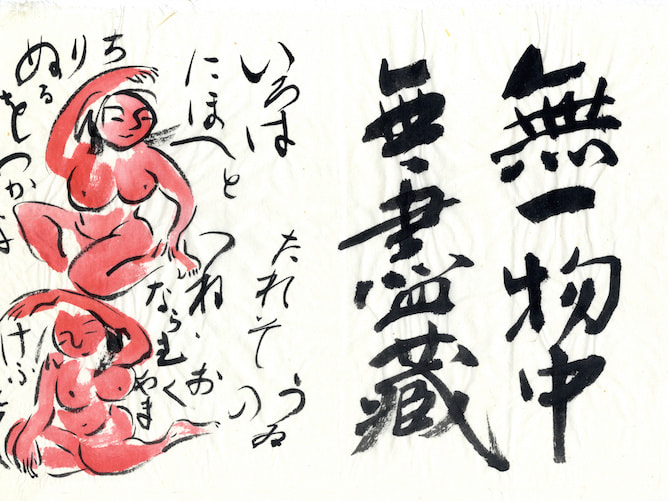 無一物中
無盡藏
いろは
にほへと
ちりぬる
をわかよ
たれそ
つね
ならむ
うゐ
の
お
く
やま
けふ